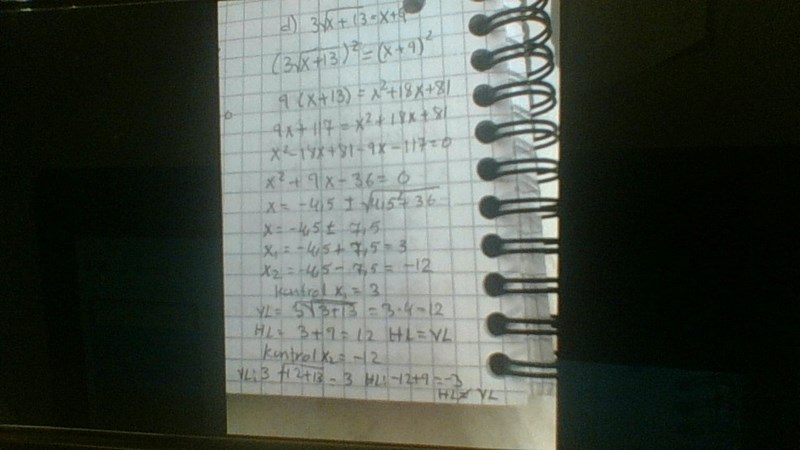 d) 3√x+13 = x+9
(3√x+13)² = (x+9)²
9(x+13) = x²+18x+81
9x+117 = x²+18x+81
x²-18x+81-9x-117=0
x²+9x-36=0
x=-4,5 ± √4,5²+36
x=-4,5 ± 7,5
x₁=-4,5+7,5=3
x₂=-4,5-7,5=-12
Kontrol x₁=3
VL= 3√3+13 = 3·4=12
HL= 3+9=12 HL=VL
Kontrol x₂=-12
VL: 3√-12+13 = 3 HL: -12+9=-3
HL≠VL